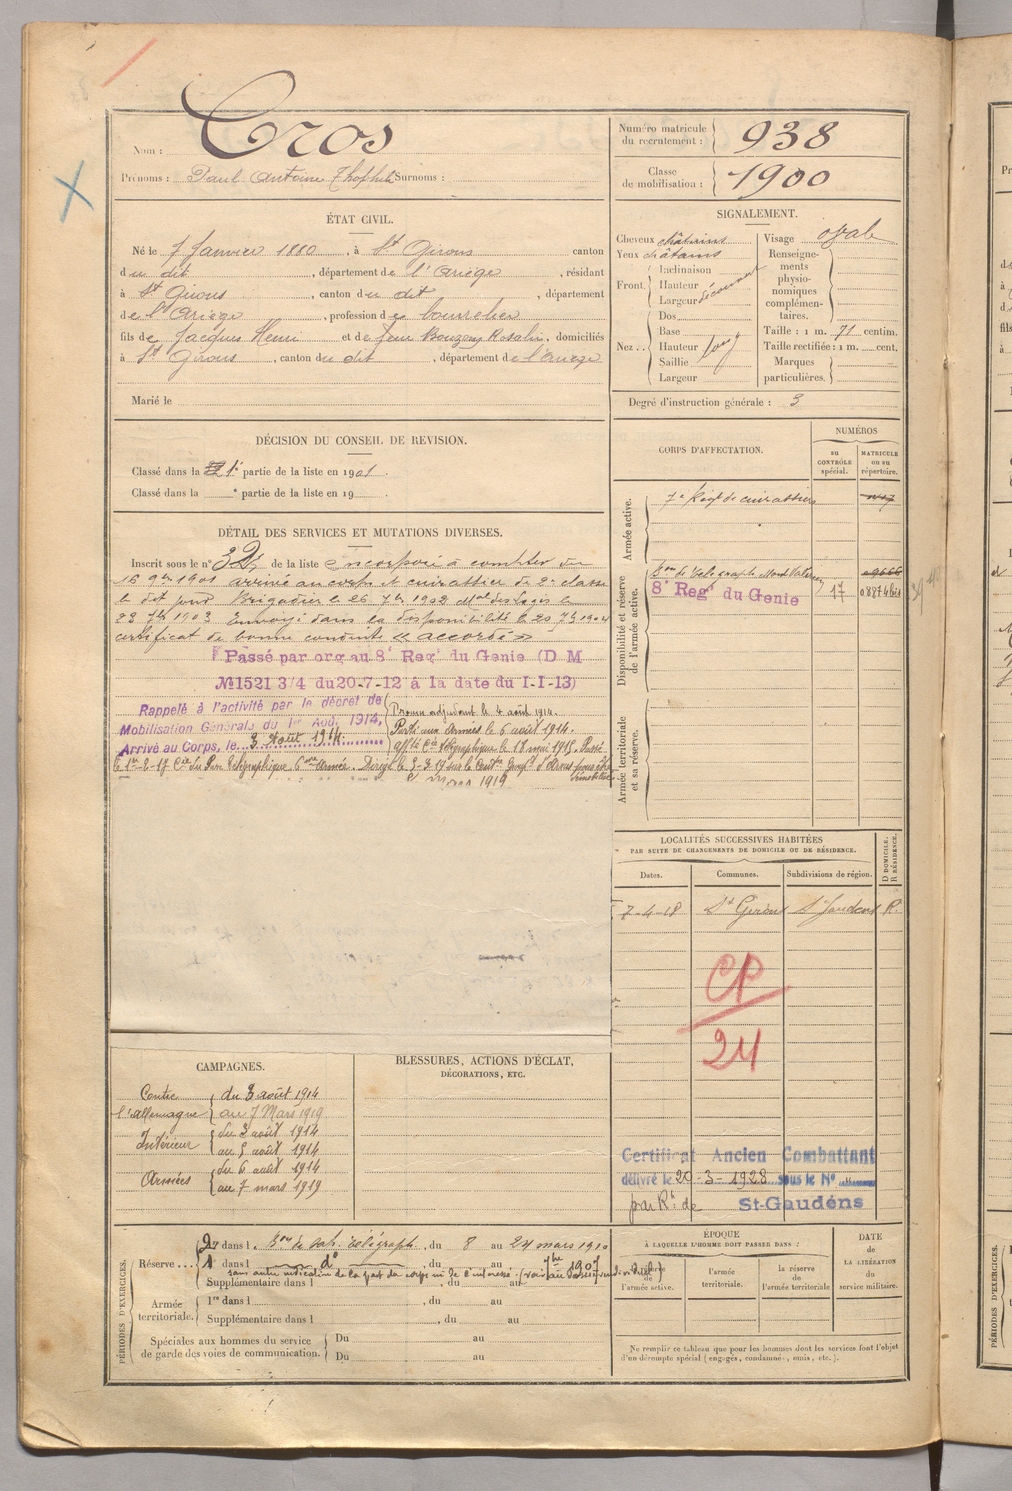 Nom : Cros
Prénoms : Paul Antoine Théophile Surnoms :
Numéro matricule du recrutement : 938
Classe de mobilisation : 1900
ÉTAT CIVIL.
Né le 7 Janvier 1880, à St Girons canton
du dit, département de l'Ariège, résidant
à St Girons, canton du dit, département
de l'Ariège, profession de bourrelier
fils de Jacques Henri et de feue Rosalie, domiciliés
à St Girons, canton du dit, département de l'Ariège
Marié le
SIGNALEMENT.
Cheveux châtains
Yeux châtains
Front. Inclinaison
Hauteur
Largeur découvert
Nez.. Dos
Base
Hauteur long
Saillie
Largeur
Visage ovale
Renseignements physionomiques complémentaires.
Taille : 1 m. 71 centim.
Taille rectifiée : 1 m. cent.
Marques particulières.
Degré d'instruction générale : 3
DÉCISION DU CONSEIL DE REVISION.
Classé dans la 1e partie de la liste en 1901.
Classé dans la e partie de la liste en 19 .
CORPS D'AFFECTATION.
NUMÉROS
au CONTRÔLE spécial.
MATRICULE ou au répertoire.
Armée active.
7e Régt de cuirassiers
Disponibilité et réserve de l'armée active.
8e Regt du Genie 17
Armée territoriale et sa réserve.
DÉTAIL DES SERVICES ET MUTATIONS DIVERSES.
Inscrit sous le n° 32 de la liste incorporé à compter du
16 9bre 1901 arrivé au corps et cuirassier de 2e classe
le dit jour Brigadier le 26 7bre 1902 Mal des Logis le
23 7bre 1903 Envoyé dans la disponibilité le 20 7bre 1904
certificat de bonne conduite « accordé »
Passé par org au 8e Regt du Genie (D M
№1521 3/4 du 20-7-12 à la date du 1-1-13)
Rappelé à l'activité par le décret de
Mobilisation Générale du 1er Août 1914,
Arrivé au Corps, le 3 août 1914
Promu adjudant le 4 août 1914.
Parti aux Armées le 6 août 1914.
Affté Cie télégraphique le 18 mai 1915. Passé
le 1er-2-17 Cie du Parc Télégraphique 6me Armée. Dirigé le 5-3-19 sur le
mars 1919
LOCALITÉS SUCCESSIVES HABITÉES
PAR SUITE DE CHANGEMENTS DE DOMICILE OU DE RÉSIDENCE.
Dates.
Communes.
Subdivisions de région.
D DOMICILE. R RÉSIDENCE.
7-4-18 St Girons St Gaudens R.
CP
24
Certificat Ancien Combattant
délivré le 20-3-1928 sous le N°
par Rt de St-Gaudens
CAMPAGNES.
Contre l'allemagne du 3 août 1914
au 7 Mars 1919
Intérieur du 3 août 1914
au 5 août 1914
Armées du 6 août 1914
au 7 mars 1919
BLESSURES, ACTIONS D'ÉCLAT,
DÉCORATIONS, ETC.
PÉRIODES D'EXERCICES.
Réserve...
2e dans l, du 8 au 24 mars 1910
1e dans l d° , du au 7bre 1907
Supplémentaire dans l , du au
Armée territoriale.
1re dans l , du au
Supplémentaire dans l , du au
Spéciales aux hommes du service de garde des voies de communication.
Du au
Du au
ÉPOQUE
À LAQUELLE L'HOMME DOIT PASSER DANS :
la réserve de l'armée active.
l'armée territoriale.
la réserve de l'armée territoriale
DATE de LA LIBÉRATION du service militaire.
Ne remplir ce tableau que pour les hommes dont les services font l'objet
d'un décompte spécial (engagés, condamnés, omis, etc.).